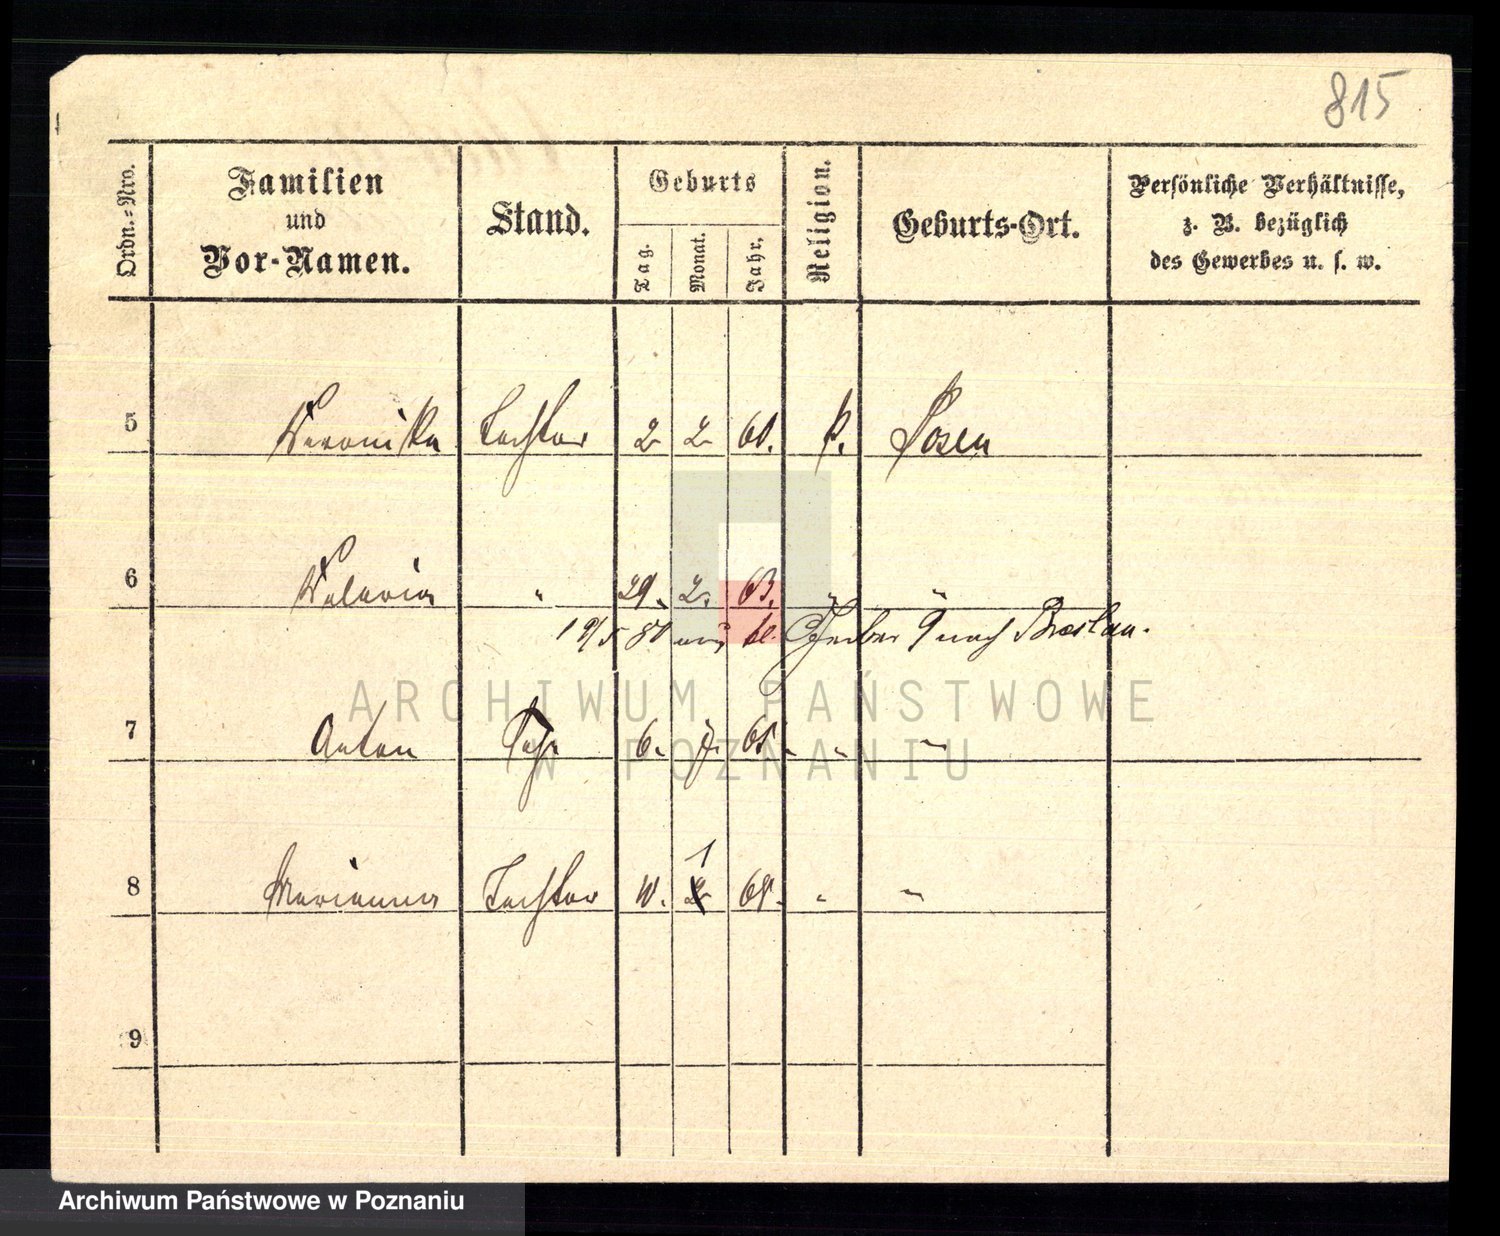 815
Ordn.=Nro.
Familien
und
Vor-Namen.
Stand.
Geburts
Tag.
Monat.
Jahr.
Religion.
Geburts-Ort.
Persönliche Verhältnisse,
z. B. bezüglich
des Gewerbes u. s. w.
5 Veronika Tochter 2 2 61. k. Posen
6 Valeria " 29. 2. 63. " "
19/5 80 nach Breslau.
7 Anton Sohn 6. 7. 65. " "
8 Marianna Tochter 1 68. " "
9
ARCHIWUM PAŃSTWOWE
W POZNANIU
Archiwum Państwowe w Poznaniu